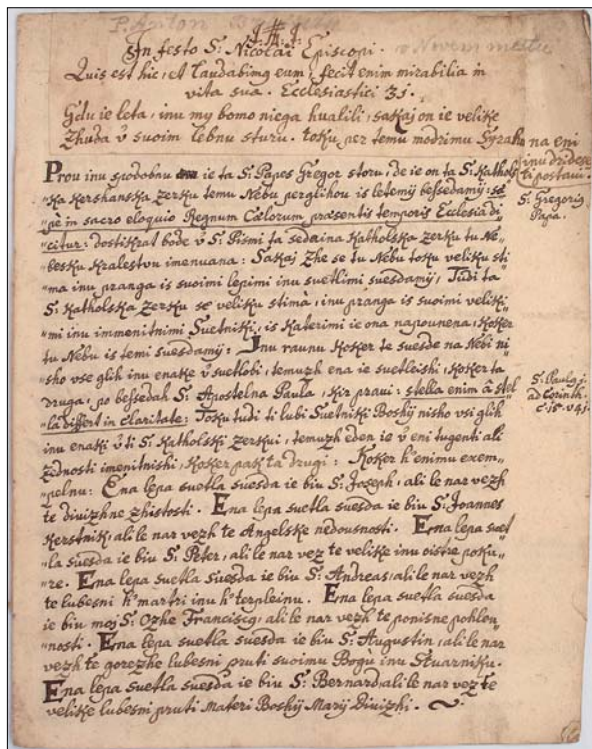 P. Anton
v Novem mestu
J. H. J.
In festo S: Nicolai Episcopi.
Quis est hic, et laudabimg eum, fecit enim mirabilia in
vita sua. Ecclesiastici 31.
Gdu ie leta, inu my bomo niega hualili, sakaj on ie velike
zhuda v suoim lebnu sturu. toku per temu modrimu Syrah
na eni
inu dridese
ti postaui.
Prou inu spodobnu ie ta S: Papes Gregor storu, de ie on ta S: Kathols
"ka Kershanska Zerku temu Nebu perglihou is letemij bessedamij: sę
"pè in sacro eloquio Regnum Cœlorum præsentis temporis Ecclesia di
"citur: dostikrat bode v S: Pismi ta sedaina Katholska Zerku tu Ne
"besku Kralestvu imenuana: Sakaj zhe se tu Nebu toku veliku sti
"ma inu pranga is suoimi lepimi inu suetlimi suesdamij, Tudi ta
S: Katholska Zerku se veliku stima, inu pranga is suoimi veliki
"mi inu immenitnimi Suetniki, is Katerimi ie ona napounena, Koker
tu Nebu is temi suesdamij: Inu raunu Koker te suesde na Nebi ni
"sho vse glih inu enake v suetlobi, temuzh ena ie suetleishi, Koker ta
druga, po bessedah S: Apostelna Paula, Kir praui: stella enim â stel
"la differt in claritate: Toku tudi ti lubi Suetniki Boshij nisho vsi glih
inu enaki v ti S: Katholski Zerkui, temuzh eden ie v eni tugenti ali
zednosti imenitnishi, Koker pak ta drugi: Koker h'enimu exem
"pelnu: Ena lepa suetla suesda ie biu S: Joseph, ali le nar vezh
te diuizhne zhistosti. Ena lepa suetla suesda ie biu S: Joannes
Kerstnik, ali le nar vezh te Angelske nedousnosti. Ena lepa suet
"la suesda ie biu S: Peter, ali le nar vez te velike inu oistre poku
"re. Ena lepa suetla suesda ie biu S: Andreas, ali le nar vezh
te lubesni h'martri inu h'terpleinu. Ena lepa suetla suesda
ie biu moj S: Ozhe Franciscg, ali le nar vezh te ponisne pohleu
"nosti. Ena lepa suetla suesda ie biu S: Augustin, ali le nar
vezh te gorezhe lubesni pruti suoimu Bogù inu Stuarniku.
Ena lepa suetla suesda ie biu S: Bernard, ali le nar vez te
velike lubesni pruti Materi Boshij Marij Diuizhi.
S. Gregorig
Papa.
S. Paulg j.
ad Corinth.
c. 15. v. 41.